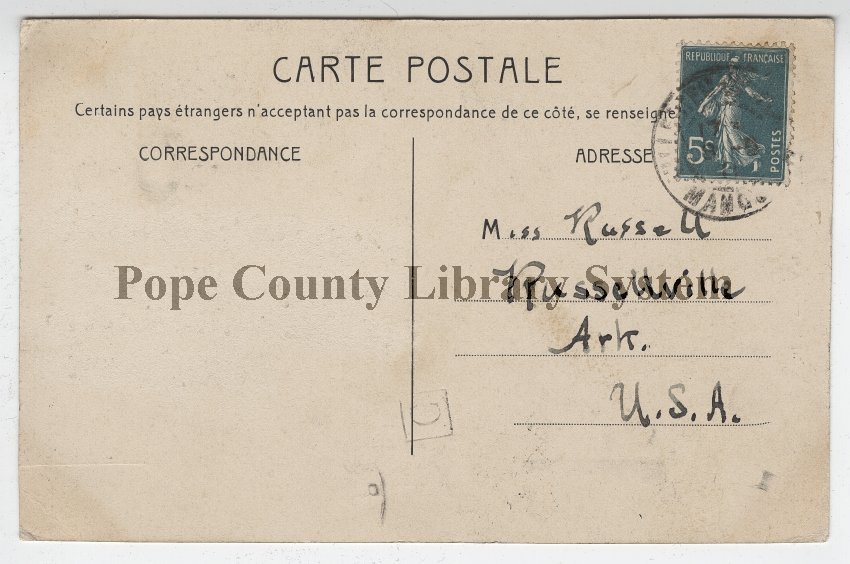 CARTE POSTALE
Certains pays étrangers n'acceptant pas la correspondance de ce côté, se renseigne
CORRESPONDANCE
ADRESSE
REPUBLIQUE FRANÇAISE
5
POSTES
Miss Russell
Russellville
Ark.
U.S.A.
Pope County Library System